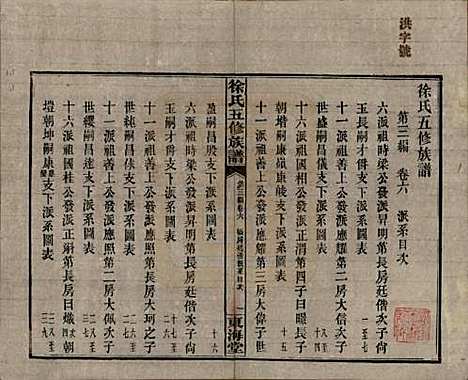 洪字號
徐氏五修族譜
第三編 卷六 派系目次
六派祖時梁公發派昇明第長房廷偕次子尚
玉長嗣才俱支下派系圖表 一至七
十一派祖善上公發派應耀第二房大信次子
世儀嗣昌 支下派系圖表
十六派祖國梁公發派正渭第四子日暄長子
朝增嗣康 康能支下派系圖表 十五
十一派祖善上公發派應耀第三房大人偉子世
徐氏五修族譜
第三編卷六
派系目次
東海堂
盈嗣昌殷支下派系圖表 十六
六派祖時梁公發派昇明第長房廷偕次子尚
玉嗣才俱支下派系圖表 十七至
十一派祖善上公發派應照第長房大珂之子
世純嗣昌 支下派系圖表
十一派祖善上公發派應照第二房大佩次子
世纓嗣昌達支下派系圖表
十六派祖國柱公發派正涓第長房日熾四子朝
塏朝坤嗣康 支下派系圖表